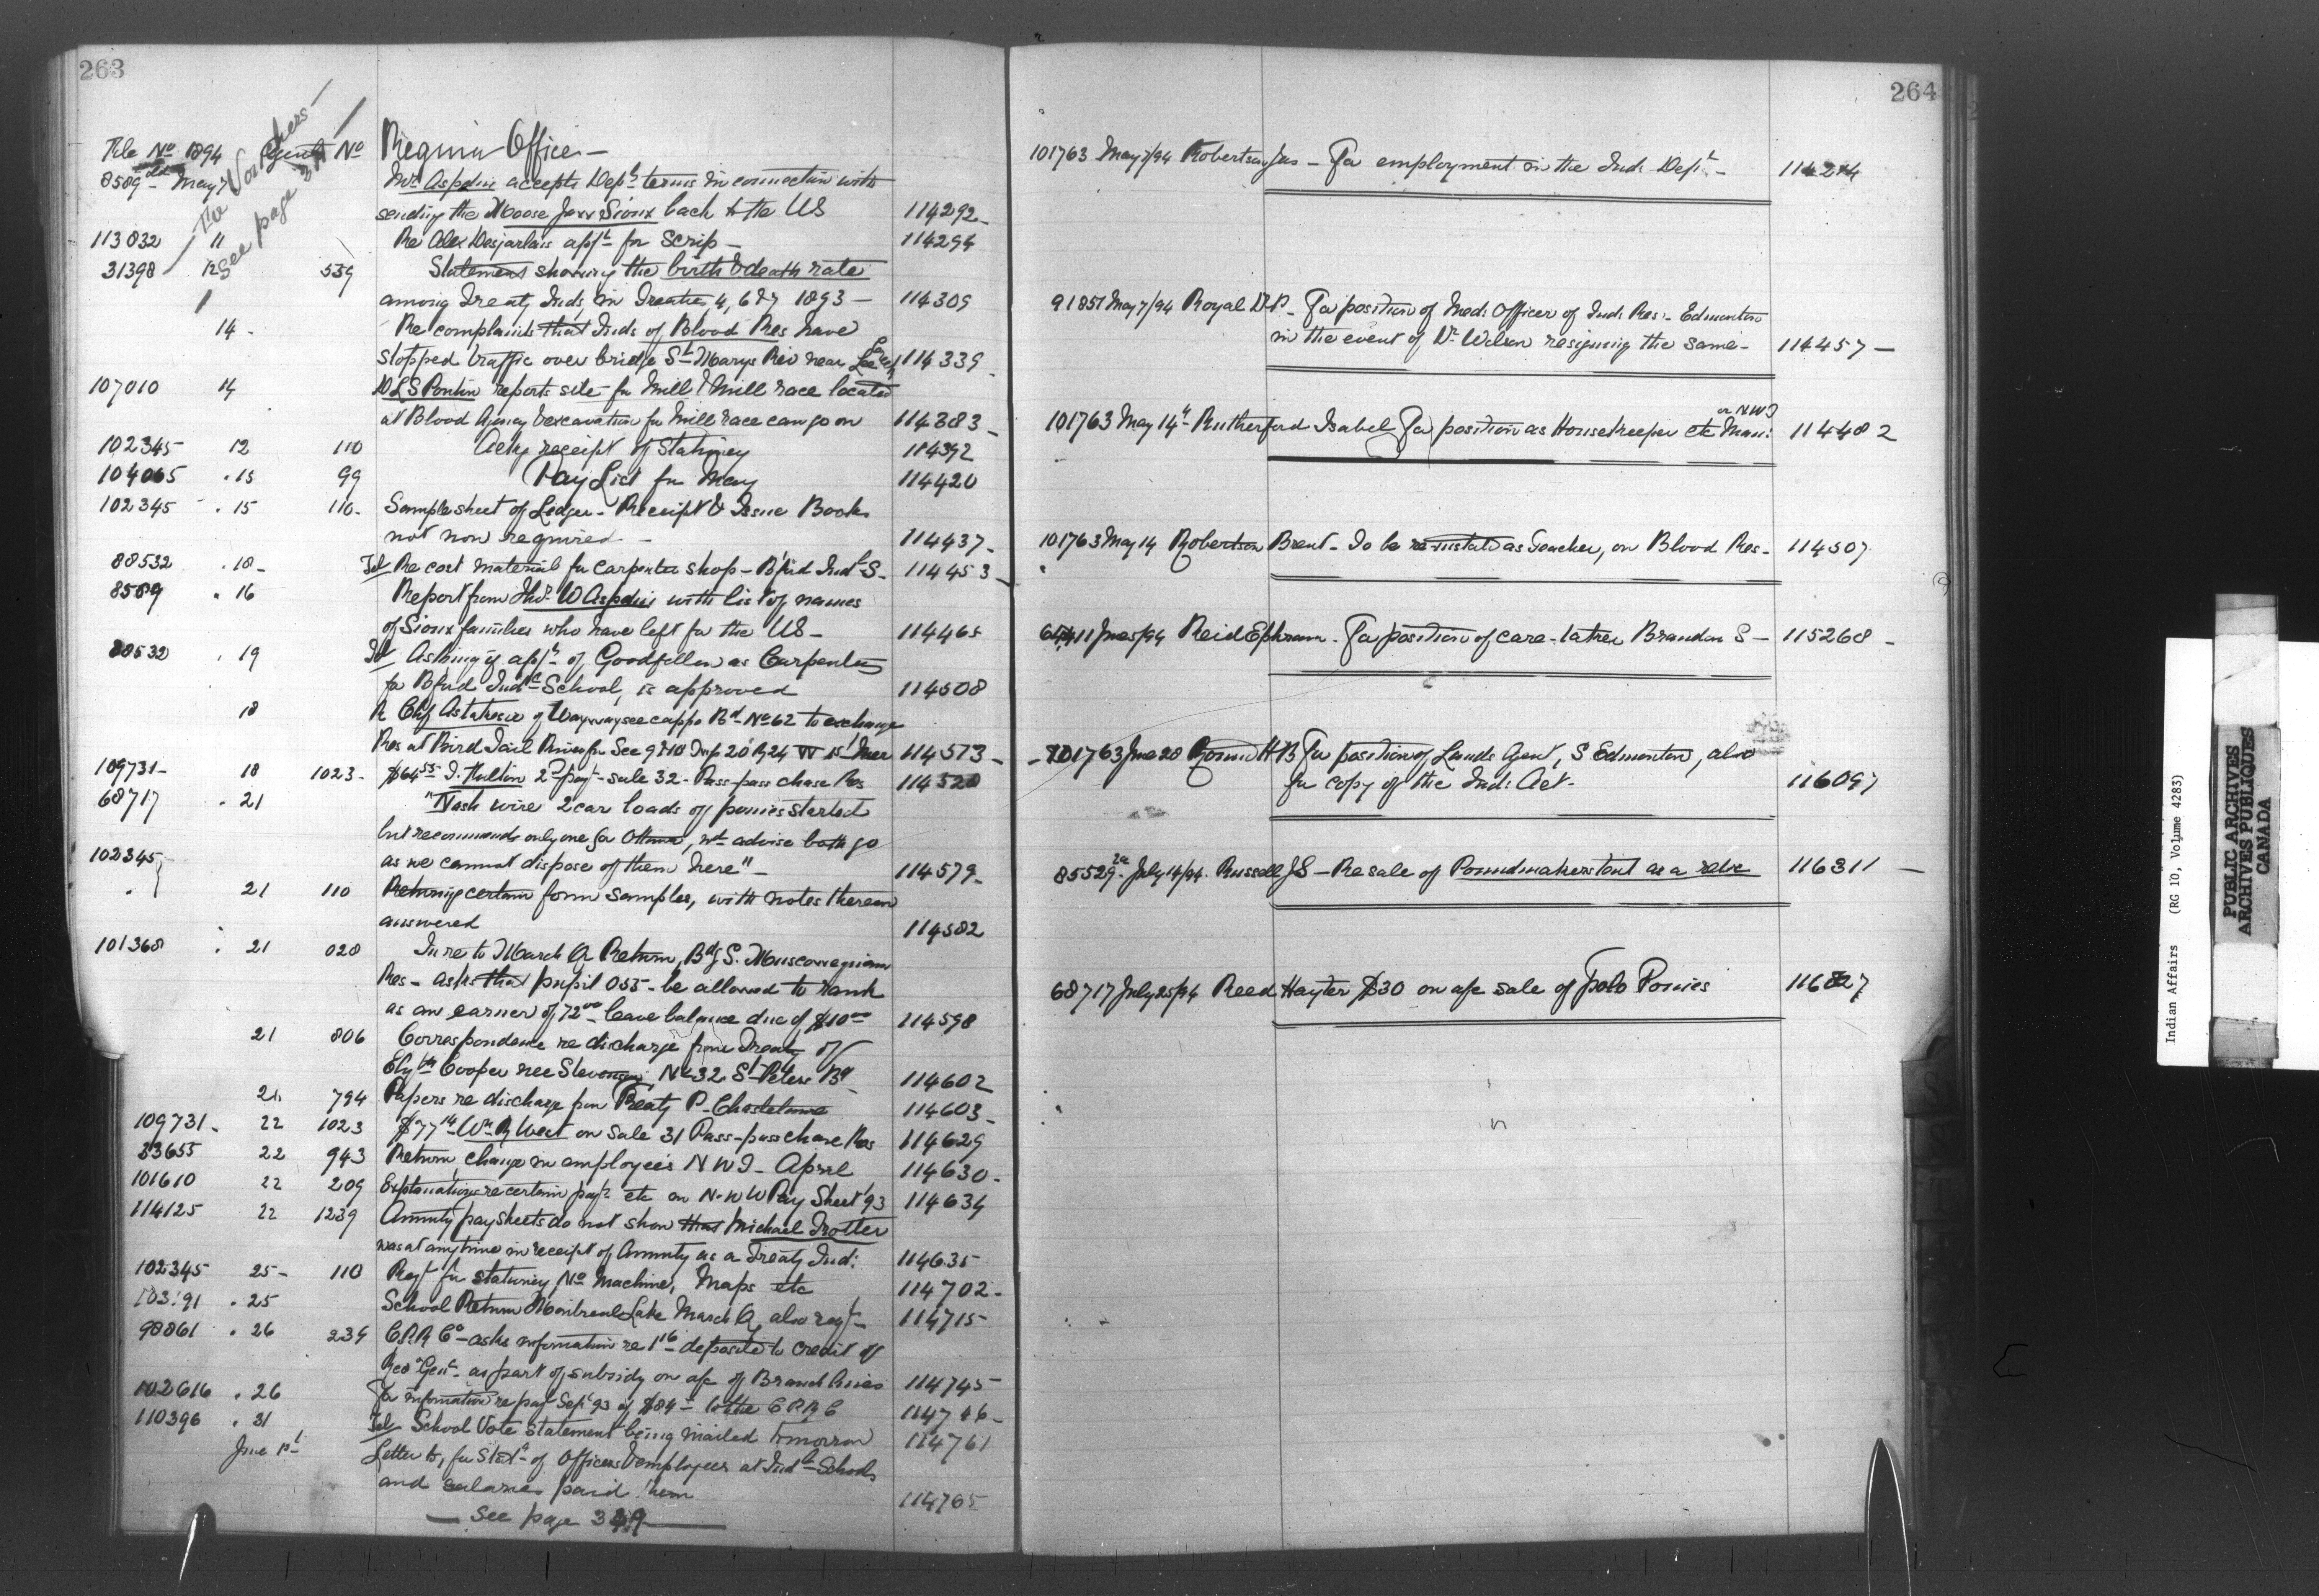 263
For Vouchers
see page
File No 1894 No Regina Office
8589 May 7 Mr Aspdin accepts Dept terms in connection with
sending the Moose Jaw Sioux back to the US 114292
113832 11 Re Alex Desjarlais appn for Scrip 114294
31398 12 539 Statement showing the birth & death rate
among Treaty Inds in Treaties 4, 6 & 7 1893 114309
14 Re complaints that Inds of Blood Res have
stopped traffic over bridge St Marys Riv near 114339
107010 14 DLS Ponton reports site for Mill & Mill race located
at Blood Agency & excavation for Mill race can go on 114383
102345 12 110 Ackg receipt of Stationery 114392
104065 15 99 Pay List for May 114420
102345 15 110 Sample sheet of Ledger - Receipt & Issue Books
not now required 114437
88532 18 Tel Re cost material for Carpenter shop - B'ford Indl S. 114453
8589 16 Report from Thos W Aspdin with list of names
of Sioux families who have left for the US 114465
88532 19 Tel Asking if appt of Goodfellow as Carpenter
for B'ford Indl School, is approved 114508
18 R Chf Astakesic of Waywayseecappo Bd No 62 to exchange
Res at Bird Tail River for Sec 9 & 10 Twp 20 R 24 W 1st Mer 114513
109731 18 1023 2nd payt - sale 32 - Pass-pass chase Res 114520
68717 21 "Nash wire 2 car loads of ponies started
but recommends only one for Ottawa, advise both go
as we cannot dispose of them here" 114579
102345
21 110 Returning certain form samples, with notes thereon
answered 114582
101368 21 028 In re to March Q Return, Bdg S. Muscowequan
Res - asks that pupil 055 - be allowed to rank
as an earner of 72 00 leave balance due of $10 00 114598
21 806 Correspondence re discharge from Treaty of
Cooper nee Stevenson No 32 St Peters Bd 114602
21 794 Papers re discharge from Treaty P. Chastelaine 114603
109731 22 1023 Wm R West on Sale 31 Pass-pass chase Res 114629
23655 22 943 Return change in employees NWT - April 114630
101610 22 209 Explanations re certain payts etc on N.W Pay Sheet '93 114634
114125 22 1239 Annuity pay sheets do not show that Michael Trotter
was at any time in receipt of Annuity as a Treaty Ind: 114635
102345 25 110 Reqt for stationery No Machine, Maps etc 114702
25 School Return Montreal Lake March Q, also reqt 114715
98861 26 234 C.P.R Co - asks information re deposited to credit of
Rec Genl as part of subsidy on a/c of Branch lines 114745
102616 26 For information re payt Sept 93 of $84 to the C.P.R C 114746
110396 31 Tel School Vote Statement being mailed tomorrow 114761
June 1st Letter to, for Statt of Officers & employees at Indl Schools
and salaries paid them 114765
See page 349
264
101763 May 7/94 Robertson Jas - For employment in the Ind: Dept 114274
91851 May 7/94 Royal D.P. For position of Med: Officer of Ind: Res: Edmonton
in the event of Dr Wilson resigning the same 114457
or NWT
101763 May 14th Rutherford Isabel For position as Housekeeper etc Man: 114482
101763 May 14 Robertson Brent - To be re-instated as Teacher, on Blood Res - 114507
June 5/94 Reid Ephram - For position of care-taker Brandon S - 115268
101763 June 20 H B For position of Lands Agent, S Edmonton, also
for copy of the Ind: Act 116097
85529 July 14/94 Russell J S - Re sale of Poundmakers tent as a relic 116311
68717 July 25/94 Reed Hayter $30 on a/c sale of Polo Ponies 116827
Indian Affairs (RG 10, Volume 4283)
PUBLIC ARCHIVES
ARCHIVES PUBLIQUES
CANADA